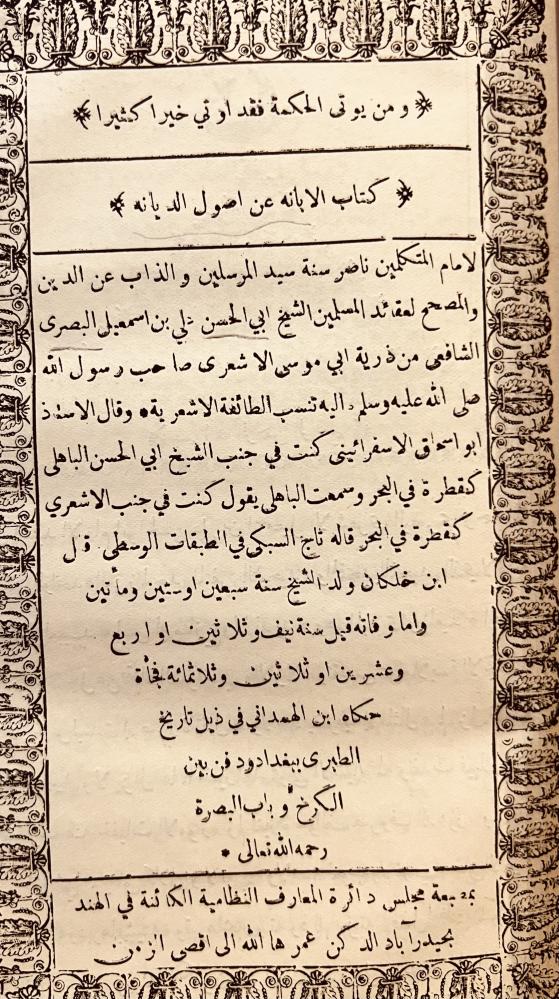 ﴿ ومن يوتى الحكمة فقد اوتي خيرا كثيرا ﴾
﴿ كتاب الابانه عن اصول الديانه ﴾
لامام المتكلمين ناصر سنة سيد المرسلين والذاب عن الدين
والمصحح لعقائد المسلمين الشيخ ابي الحسن علي بن اسمعيل البصرى
الشافعى من ذرية ابي موسى الاشعرى صاحب رسول الله
صلى الله عليه وسلم واليه تنسب الطائفة الاشعرية • وقال الاستاذ
ابو اسحاق الاسفرائينى كنت في جنب الشيخ ابي الحسن الباهلى
كقطرة في البحر وسمعت الباهلى يقول كنت في جنب الاشعري
كقطرة في البحر قاله تاج السبكى في الطبقات الوسطى قال
ابن خلكان ولد الشيخ سنة سبعين اوستين ومأتين
واما وفاته قيل سنة نيف وثلاثين او اربع
وعشرين او ثلاثين وثلاثمائة فجأة
حكاه ابن الهمدانى في ذيل تاريخ
الطبرى ببغداد ودفن بين
الكرخ و باب البصرة
رحمه الله تعالى *
بمطبعة مجلس دائرة المعارف النظامية الكائنة في الهند
بحيدرآباد الدكن عمرها الله الى اقصى الزمن